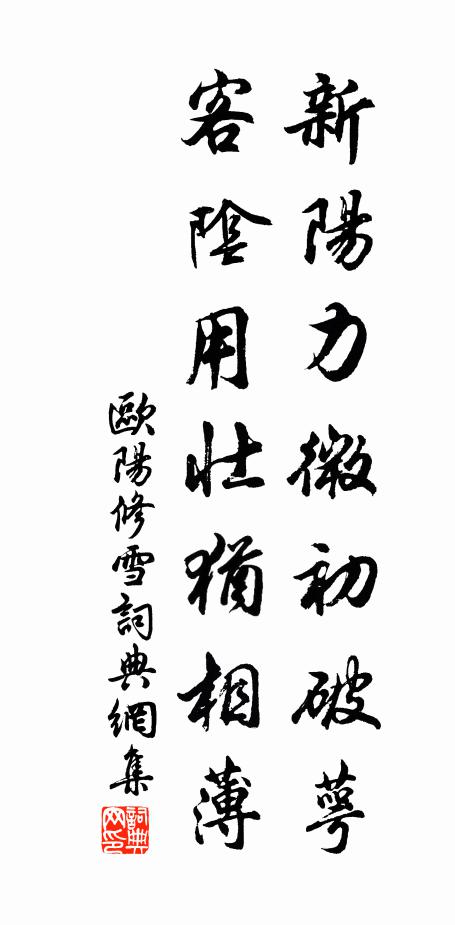 新陽力微初破萼
客陰用壯猶相薄
歐陽修雪詞典網集
詞典网印